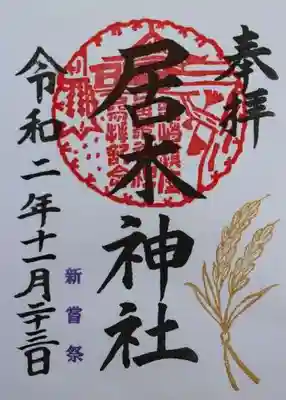 奉拝
居木神社
令和二年十一月二十三日
新嘗祭